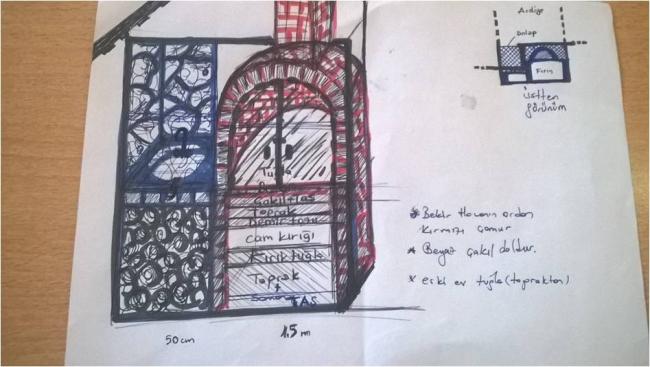 Ardiye
Dolap
Fırın
üstten
görünüm
Tuğla
Çakıl taş
Toprak
Demir tozu
cam kırığı
Kırık tuğla
Toprak
+
Saman
TAŞ
50 cm
1.5 m
kırmızı çamur
* Beyaz çakıl doldur.
* eski ev tuğla (topraktan)